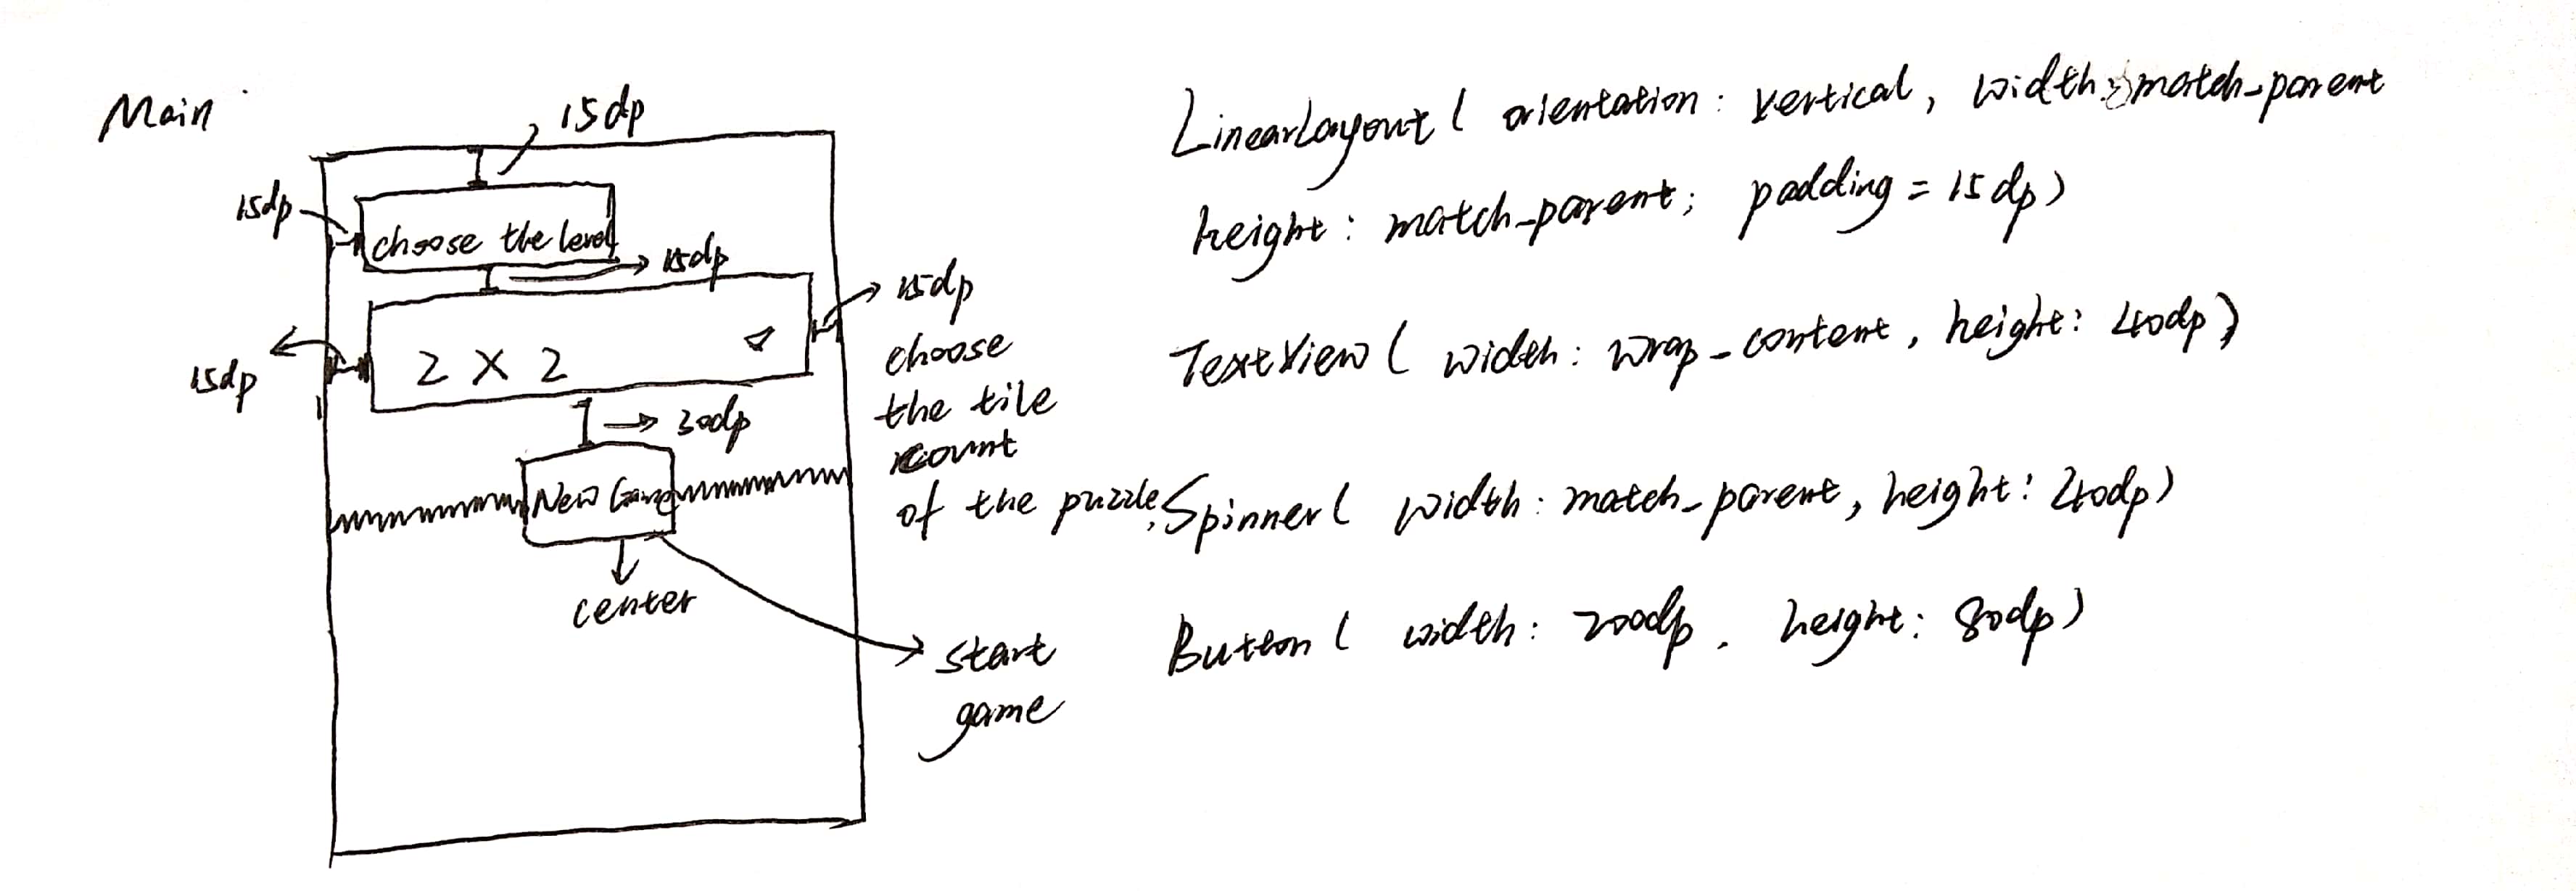 Main
15dp
15dp
choose the level
15dp
15dp
15dp
2 X 2
30dp
choose
the tile
count
of the puzzle,
New Game
center
start
game
LinearLayout ( orientation : vertical, width : match_parent
height : match_parent; padding = 15dp)
TextView ( width : wrap_content, height : 40dp)
Spinner ( width : match_parent, height : 40dp)
Button ( width : 200dp . height : 80dp)